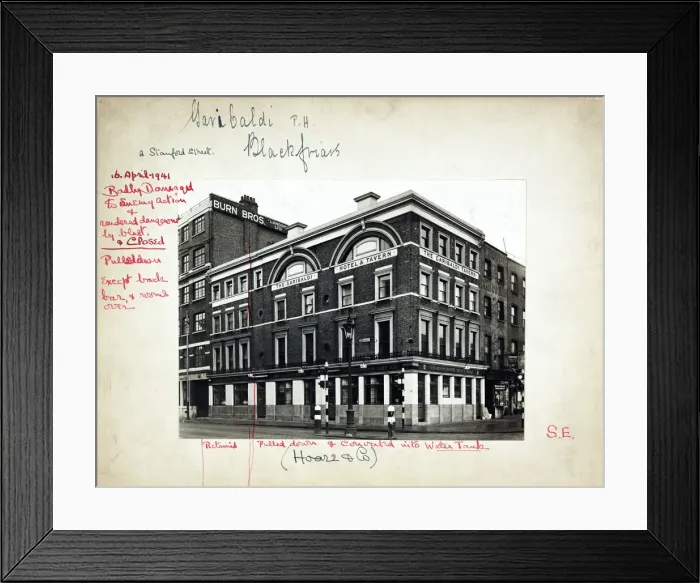 Garibaldi P.H.
Blackfriars
2 Stamford Street.
16. April. 1941
Badly Damaged
to Enemy Action
&
rendered dangerous
by blast,
& Closed
Pulled down
Except back
bar, & rooms
over
BURN BROS.
THE GARIBALDI
HOTEL & TAVERN
THE GARIBALDI TAVERN
S.E.
Retained
Pulled down & Converted into Water Tank
(Hoare & Co)